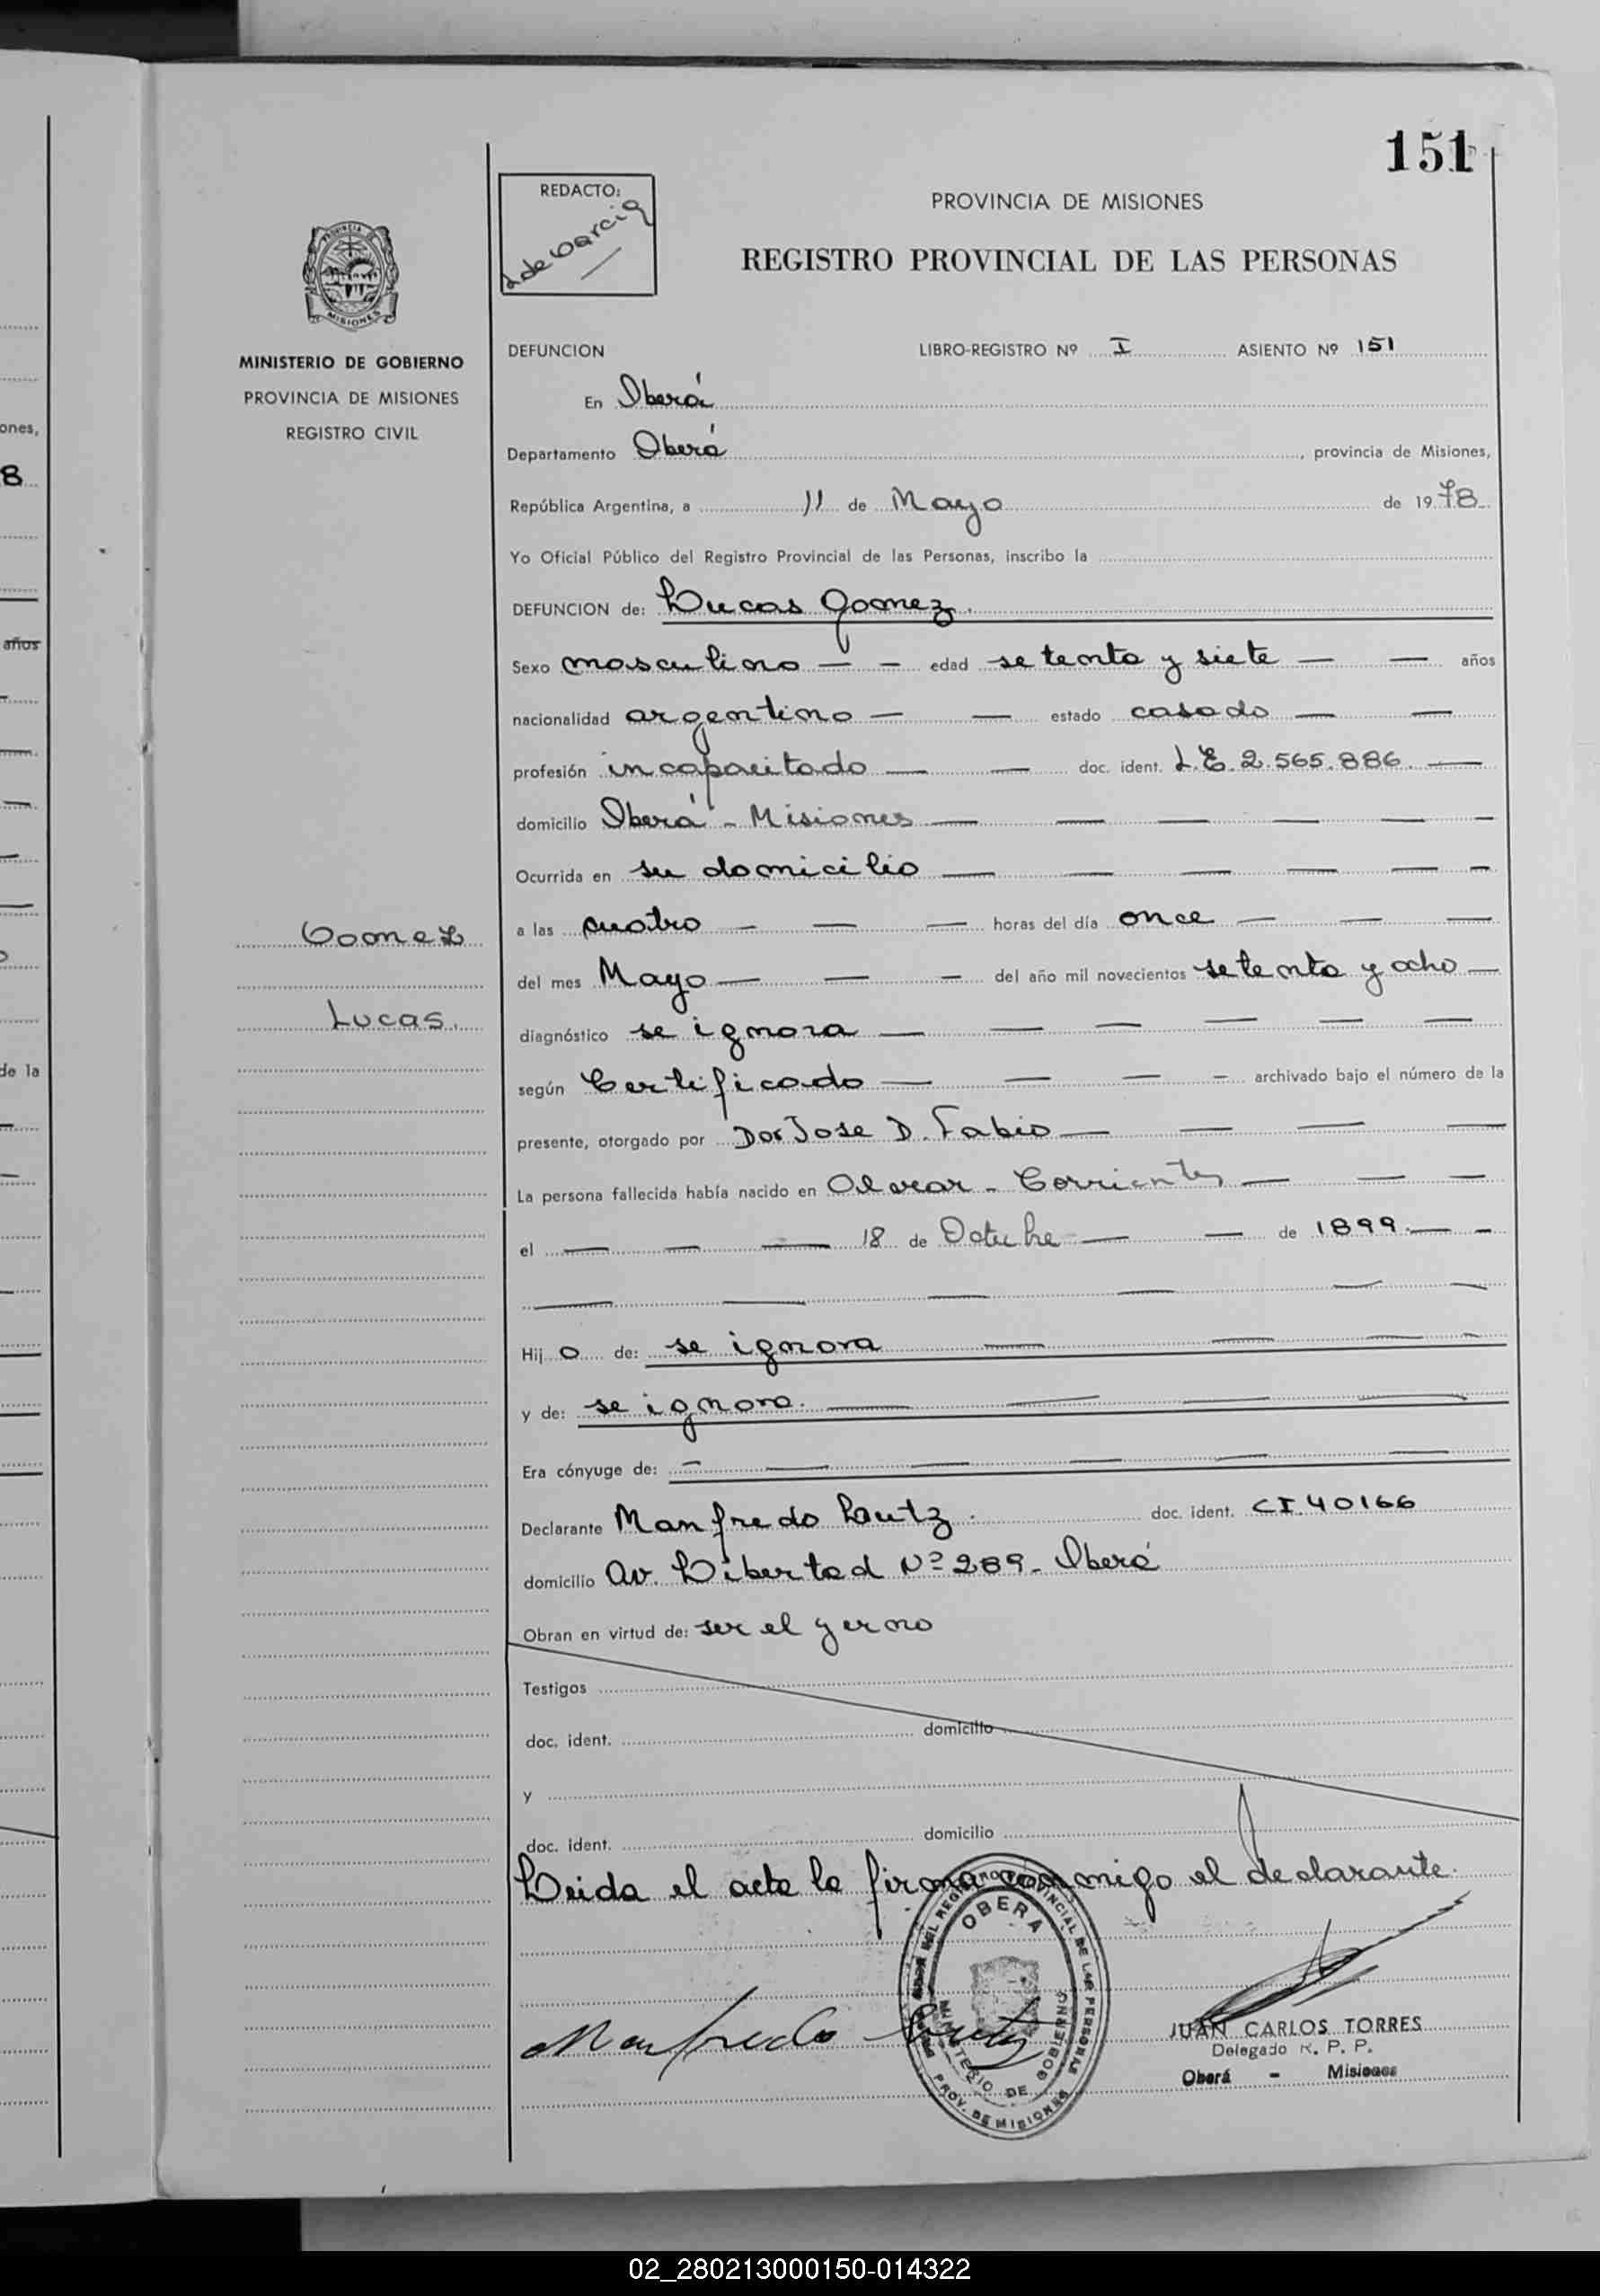 151
REDACTO:
L de Garcia
PROVINCIA DE MISIONES
REGISTRO PROVINCIAL DE LAS PERSONAS
MISIONES
MINISTERIO DE GOBIERNO
PROVINCIA DE MISIONES
REGISTRO CIVIL
DEFUNCION LIBRO-REGISTRO Nº I ASIENTO Nº 151
En Oberá
Departamento Oberá, provincia de Misiones,
República Argentina, a 11 de Mayo de 1978
Yo Oficial Público del Registro Provincial de las Personas, inscribo la
DEFUNCION de: Lucas Gomez.
Sexo masculino — — edad setenta y siete — — años
nacionalidad argentino — — estado casado — —
profesión incapacitado — — doc. ident. L.E. 2.565.886. —
domicilio Oberá - Misiones — — — — — —
Ocurrida en su domicilio — — — — — —
Gomez
a las cuatro — — — horas del día once — — —
del mes Mayo — — — del año mil novecientos setenta y ocho —
Lucas.
diagnóstico se ignora — — — — — —
según Certificado — — — — archivado bajo el número de la
presente, otorgado por Dor Jose D. Fabio — — — —
La persona fallecida había nacido en Alvear - Corrientes — — —
el — — — 18 de Octubre — — de 1899. — —
Hijo de: se ignora — — — —
y de: se ignora. — — — —
Era cónyuge de: — — — — — —
Declarante Manfredo Lautz. doc. ident. CI.40166
domicilio Av. Libertad Nº 289 - Oberá
Obran en virtud de: ser el yerno
Testigos
doc. ident. domicilio
y
doc. ident. domicilio
Leida el acta la firma conmigo el declarante.
REGISTRO PROVINCIAL DE LAS PERSONAS
OBERA
MINISTERIO DE GOBIERNO
PROV. DE MISIONES
Manfredo Lautz
JUAN CARLOS TORRES
Delegado R. P. P.
Oberá - Misiones
ones,
8
años
de la
02_280213000150-014322